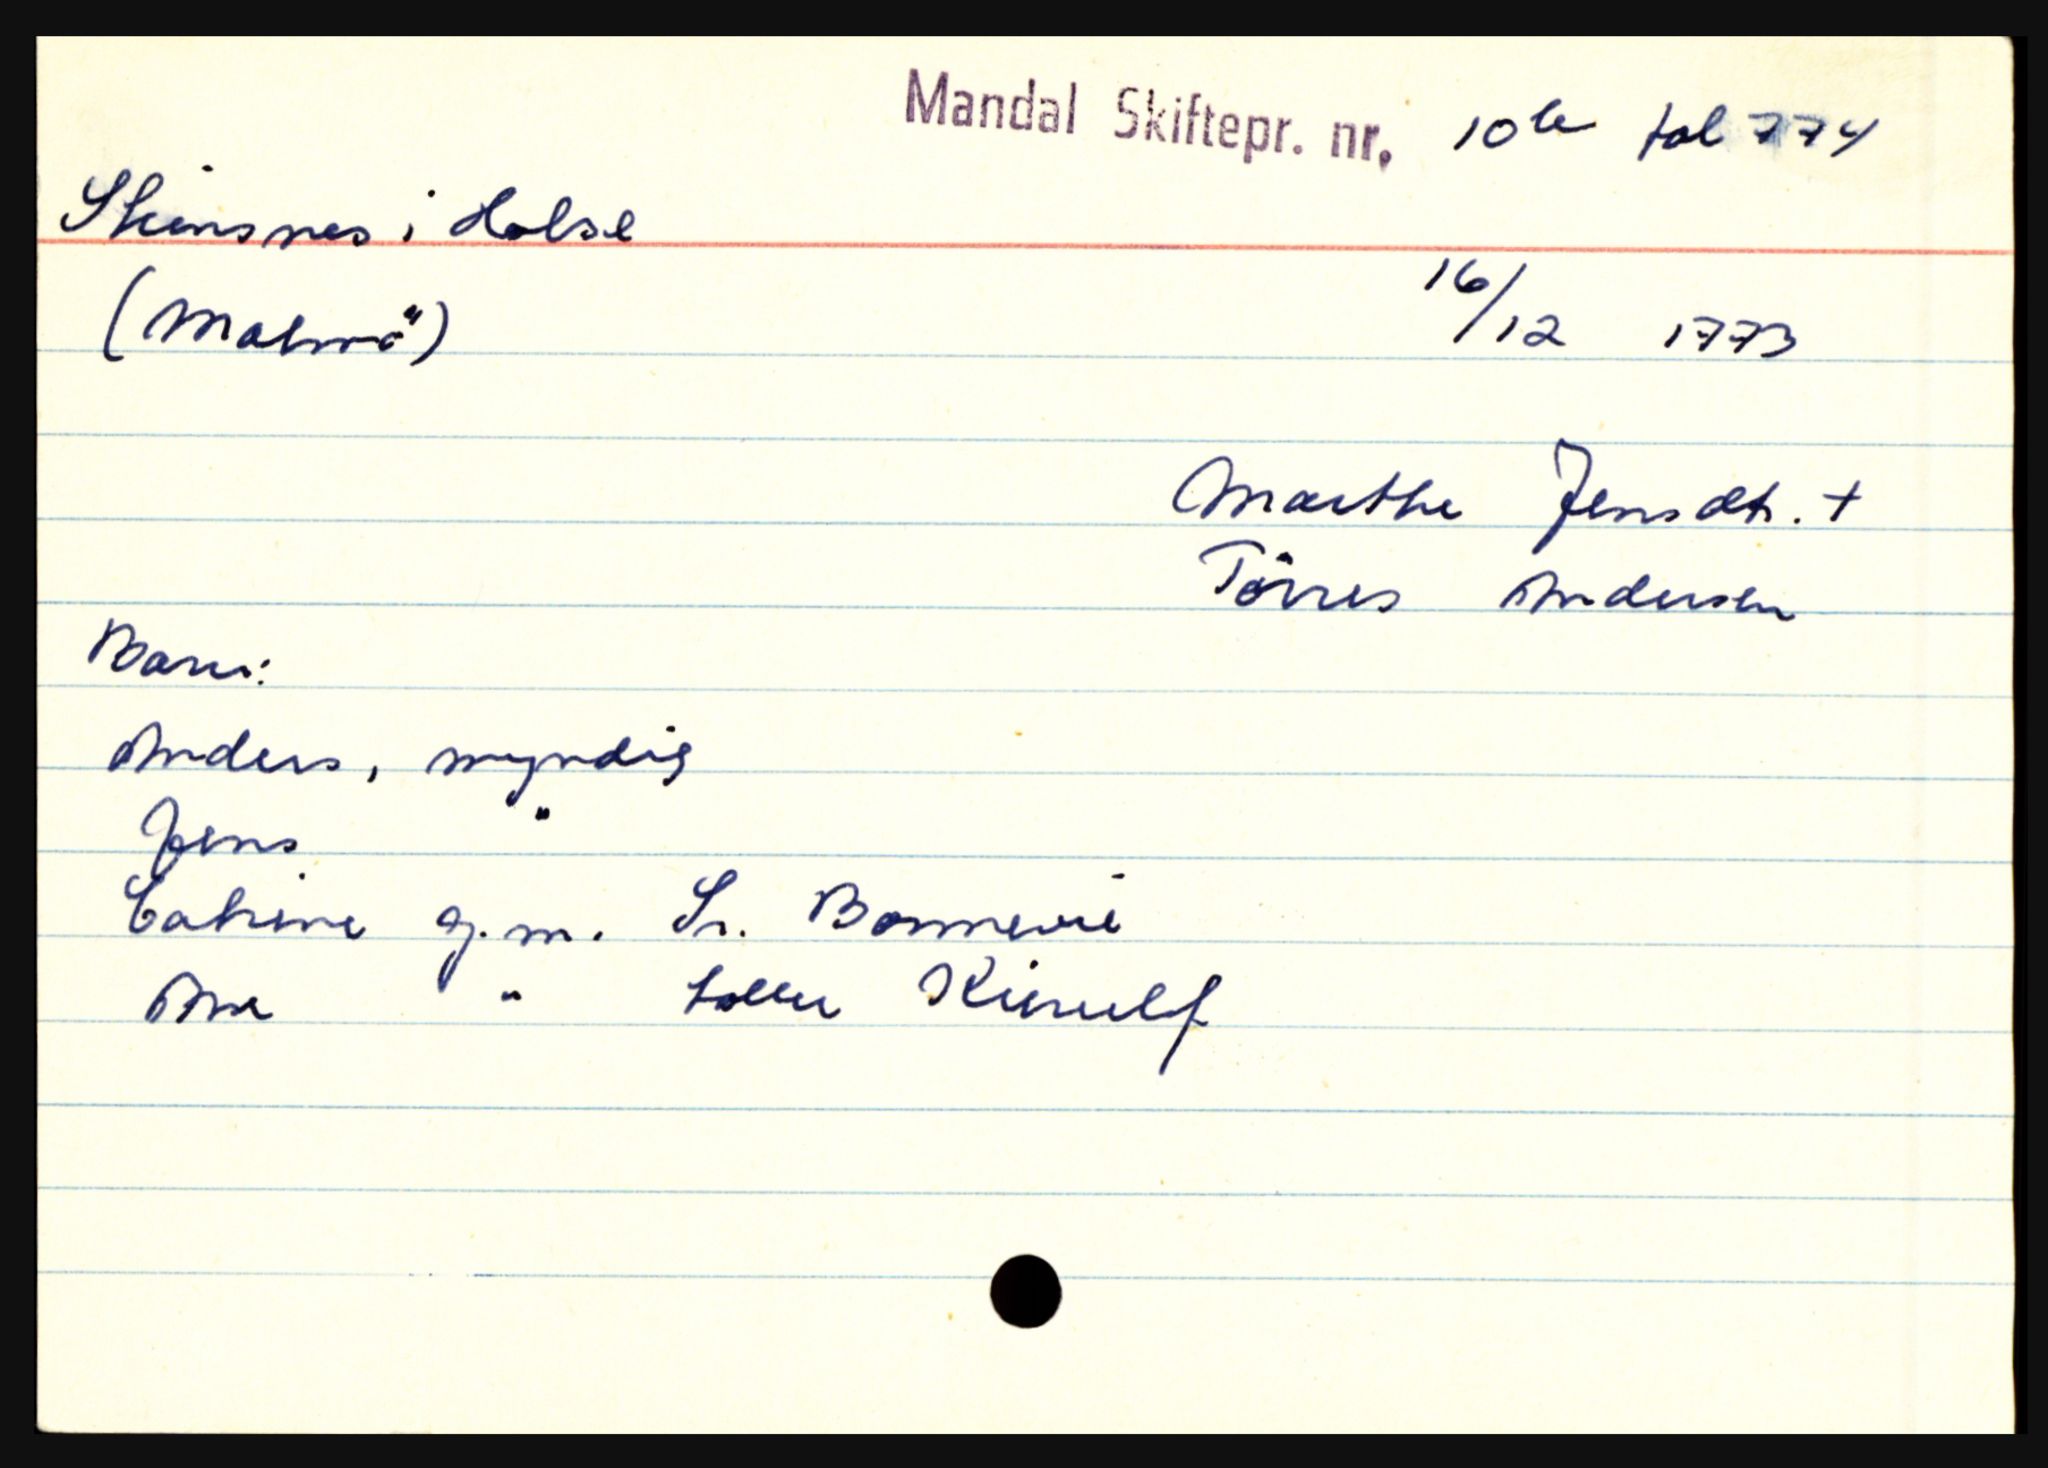 Mandal Skiftepr. nr. 10 b fol 774
Steinsnes i Halse
(Malmö) 16/12 1773
Marthe Jensdtr. +
Törres Andersen
Barn:
Anders, myndig
Jens "
Catrine gj. m. Sr. Bonnevie
Ane " toller Kierulf